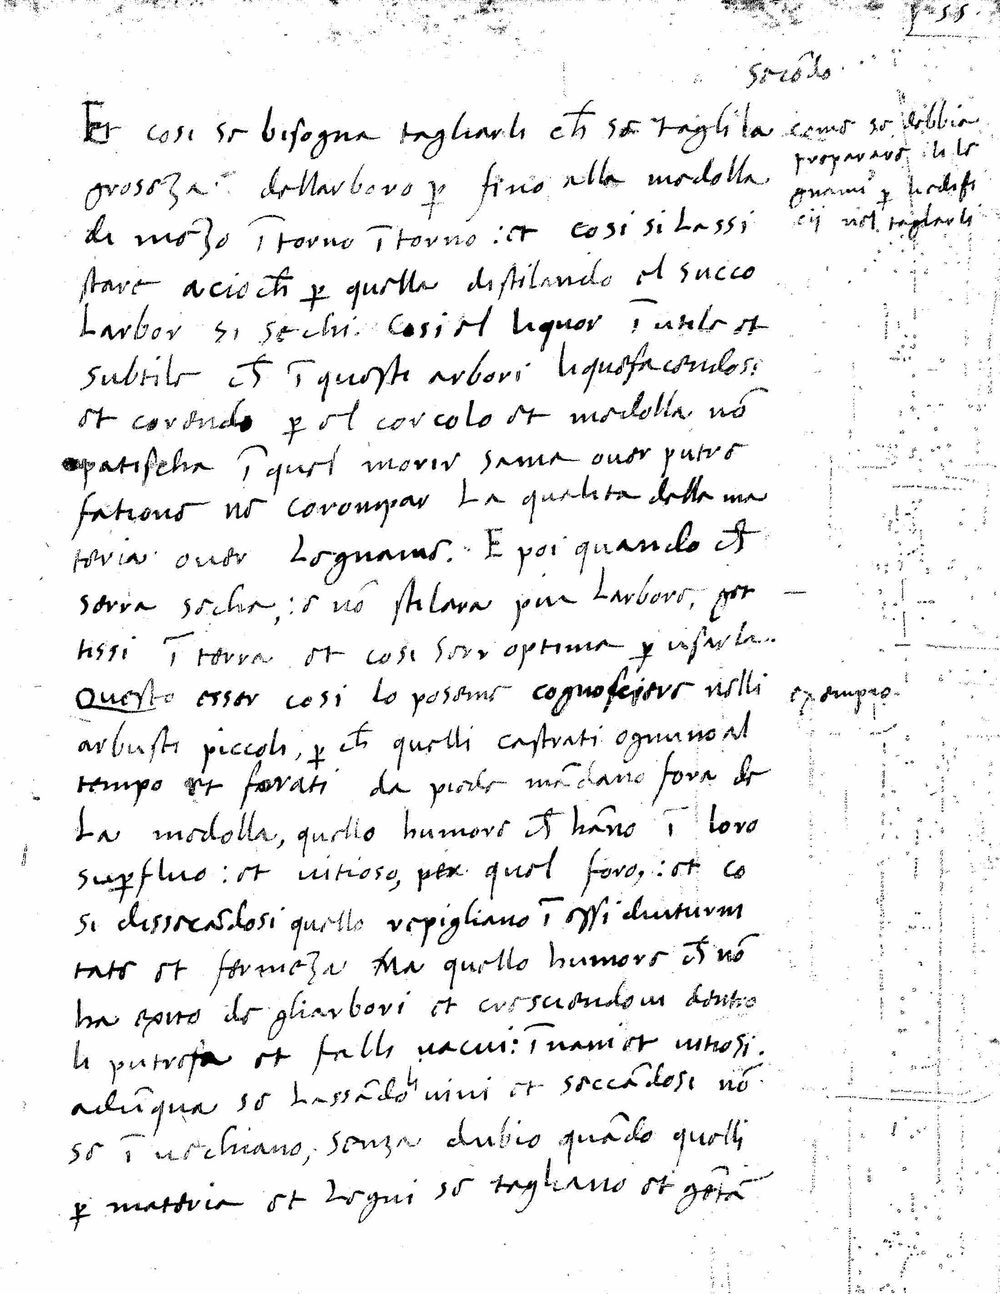 55
Secōdo
Et cosi se bisogna tagliarli ch̄ se tagli la
groseza dellarboro p̲ fino alla medolla
di mezo ī torno ī torno : et cosi si Lassi
stare acioch̄ p̲ quella distilando el succo
Larbor si sechi. Cosi el liquor ī utile et
subtile ch̄ ī questi arbori liquefacendosi
et corendo p̲ el corcolo et medolla nō
patischa ī quel morir sama over putre
fatione ne corompar La qualita della ma
teria over Legname. E poi quando ch̄
serra secha, : e nō stilara piu Larboro, get
tissi ī terra et cosi serr optima p̲ usarla.
Questo esser cosi lo poseme cognosciere nelli
arbusti piccoli, p̲ ch̄ quelli castrati ognuno al
tempo et forati da piede mādano fora de
La medolla, quello humore ch̄ hāno ī loro
sup̲fluo : et vitioso, per quel foro, : et co
si dissecādosi quello repigliano ī essi diuturni
tate et fermeza Ma quello humore ch̄ nō
ha exito de gliarbori et cresciendovi dentro
li putrefa et falli vacui : ī nani et vitiosi.
adūnqua se Lassādoli vivi et seccādosi nō
se ī vechiano, senza dubio quādo quelli
p̲ materia et Legni se tagliano et getā
come se debbia
preparare li le
gnami p̲ hedifi
cij nel tagliarli
exempio